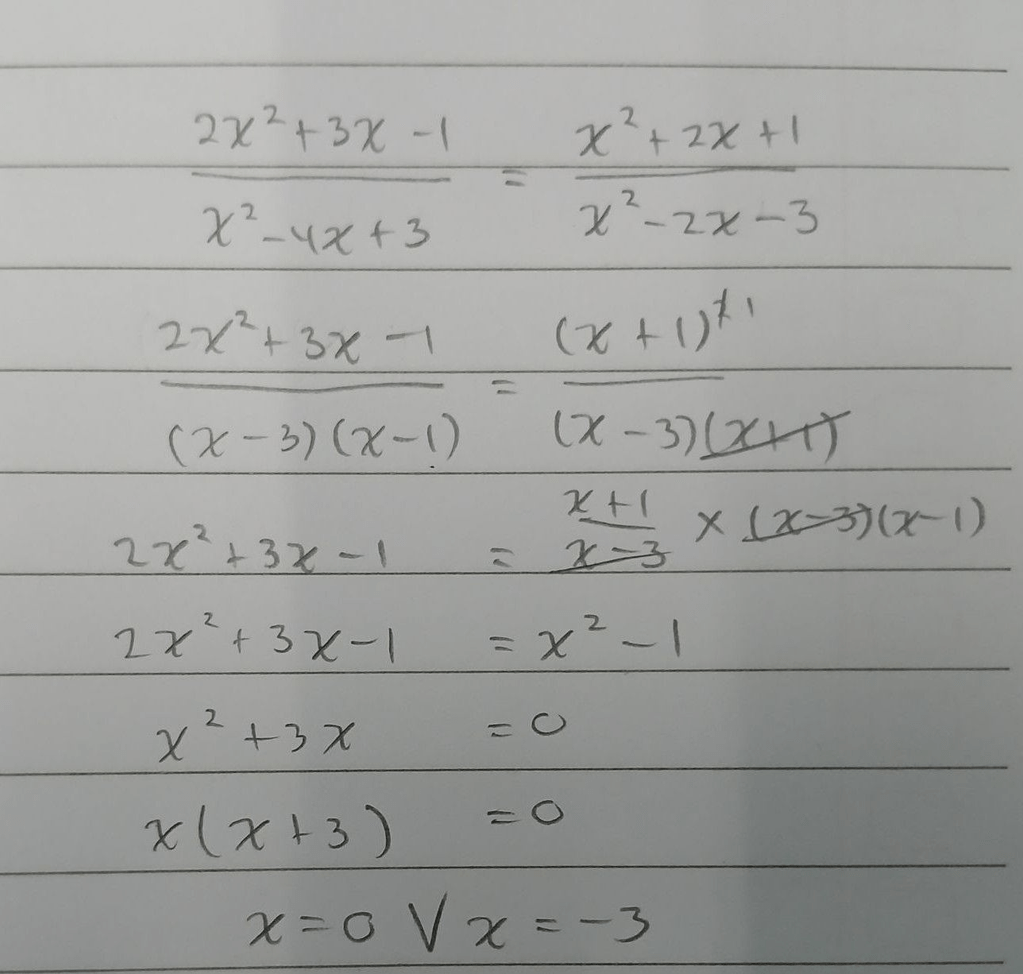 2x²+3x-1 / x²-4x+3 = x²+2x+1 / x²-2x-3
2x²+3x-1 / (x-3)(x-1) = (x+1)^2̸ 1 / (x-3)(x+1)
2x²+3x-1 = x+1 / x-3 × (x-3)(x-1)
2x²+3x-1 = x²-1
x²+3x = 0
x(x+3) = 0
x=0 ∨ x=-3